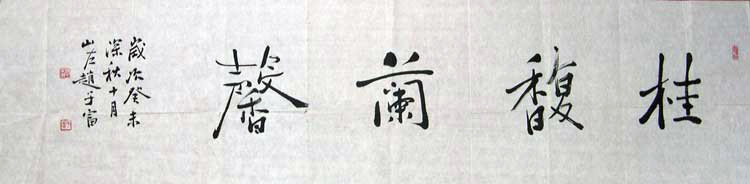 桂馥蘭馨
歲次癸未
深秋十月
山左趙子富